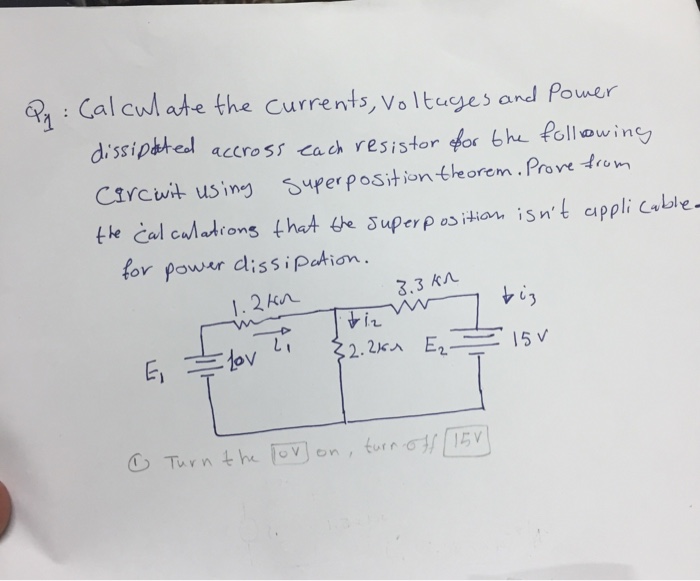 Q1 : Calculate the currents, Voltages and Power
dissipated accross each resistor for the following
Circuit using Superposition theorem. Prove from
the calculations that the superposition isn't applicable
for power dissipation.
1.2kΩ
3.3 kΩ
↓i3
↓i2
i1
E1
10V
2.2kΩ
E2
15 V
① Turn the 10V on, turn off 15V